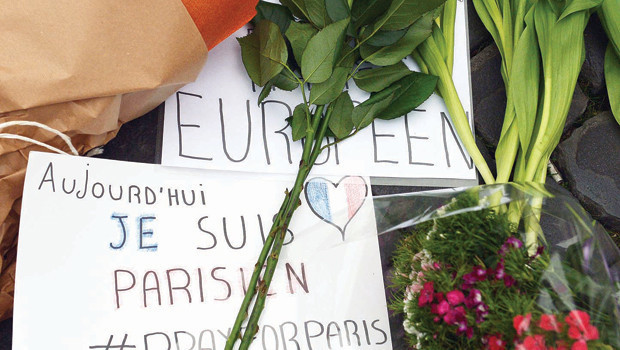 EUROPEEN
AUJOURD'HUI
JE SUIS
PARISIEN
#PRAYFORPARIS